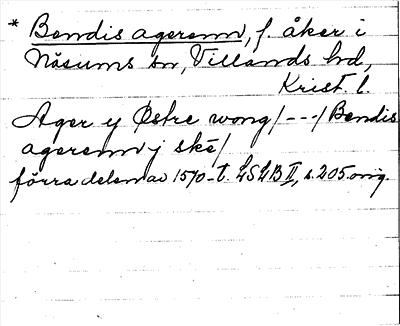 * Bendis agerenn, f. åker i
Näsums sn, Villands hd,
Krist. l.
Ager y Østre wong / - - - / Bendis
agerenn j skě /
förra delen av 1570-t. LSLB II, s. 205 orig.